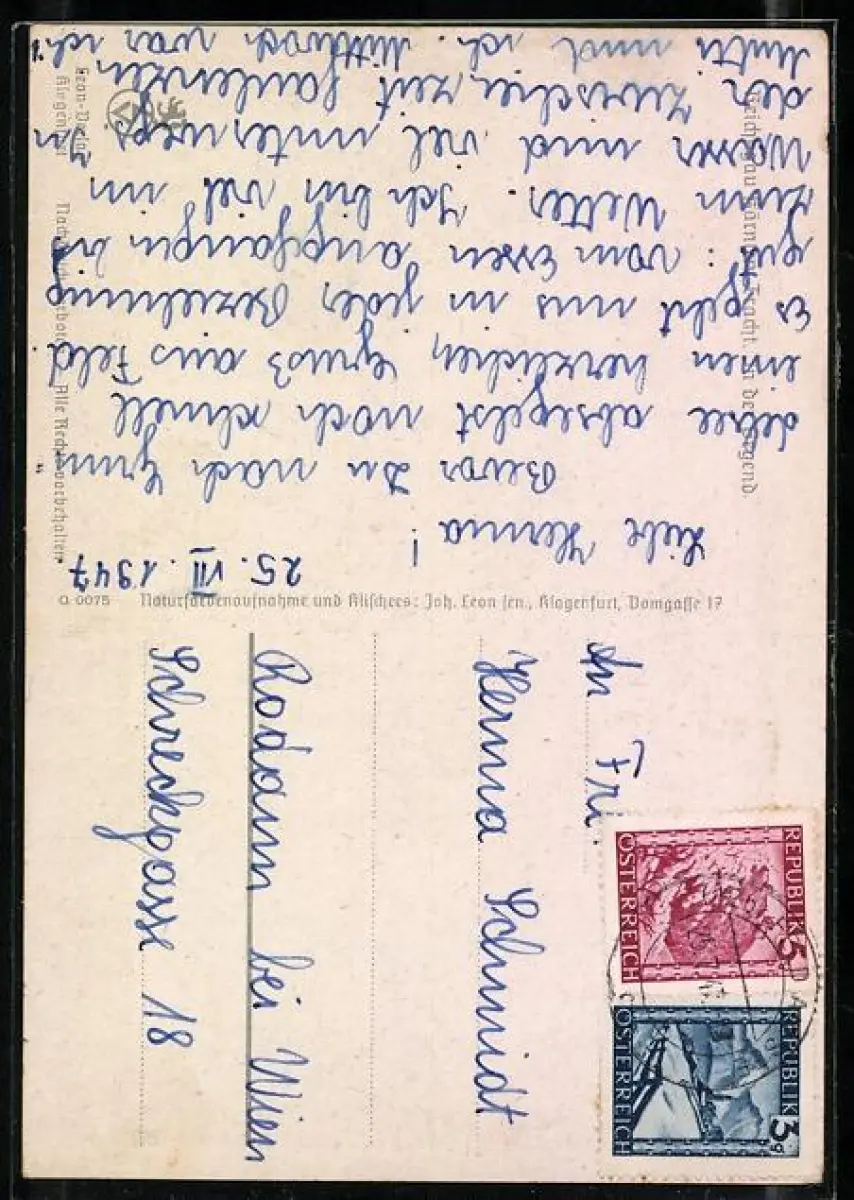 25. VII. 1947
Liebe Herma!
Bevor Du nach Grun
delsee absegelst noch schnell
einen herzlichen Gruß aus Feld
Es geht uns in jeder Beziehung
gut: vom Essen angefangen bis
zum Wetter. Ich bin viel im
Wasser und viel unterwegs In
der Zwischenzeit faulenzen
Mutti und ich. Mittwoch war ich
An Frl.
Herma Schmidt
Rodaun bei Wien
Schreckgasse 18
REPUBLIK
5
ÖSTERREICH
REPUBLIK
3g
ÖSTERREICH
Q 0075 Naturfarbenaufnahme und Klischees: Joh. Leon sen., Klagenfurt, Domgasse 17
Leon-Verlag
Klagenfurt
Alle Rechte vorbehalten.
Reichsgau Kärnten: Tracht